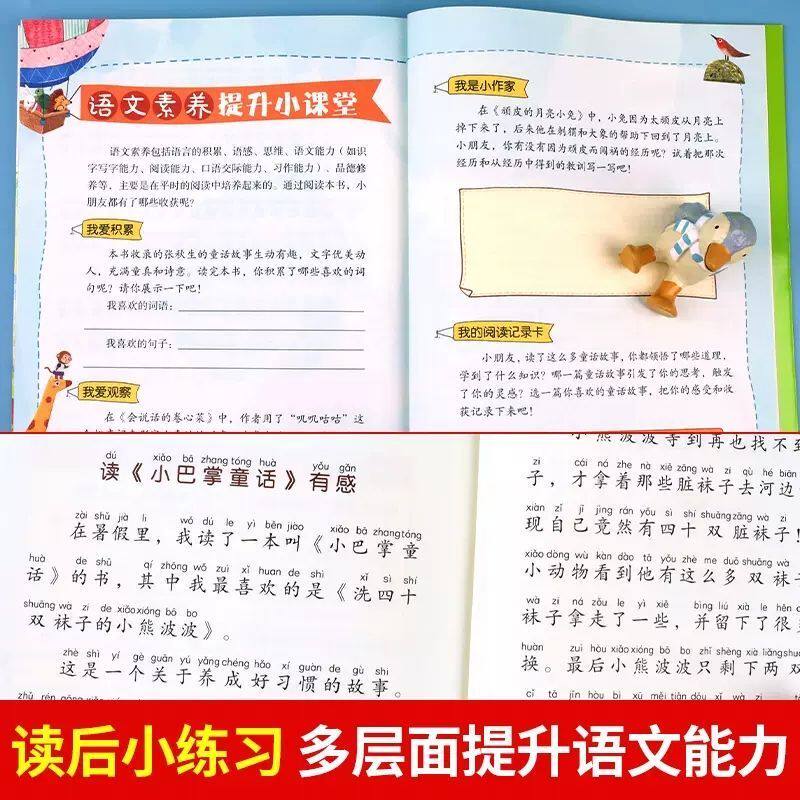 语文素养提升小课堂
语文素养包括语言的积累、语感、思维、语文能力（如识
字写字能力、阅读能力、口语交际能力、习作能力）、品德修
养等，主要是在平时的阅读中培养起来的。通过阅读本书，小
朋友都有了哪些收获呢？
我爱积累
本书收录的张秋生的童话故事生动有趣，文字优美动
人，充满童真和诗意。读完本书，你积累了哪些喜欢的词
句呢？请你展示一下吧！
我喜欢的词语：
我喜欢的句子：
我爱观察
在《会说话的卷心菜》中，作者用了“叽叽咕咕”这
我是小作家
在《顽皮的月亮小兔》中，小兔因为太顽皮从月亮上
掉下来了，后来他在刺猬和大象的帮助下回到了月亮上。
小朋友，你有没有因为顽皮而闯祸的经历呢？试着把那次
经历和从经历中得到的教训写一写吧！
我的阅读记录卡
小朋友，读了这么多童话故事，你都领悟了哪些道理，
学到了什么知识？哪一篇童话故事引发了你的思考，触发
了你的灵感？选一篇你喜欢的童话故事，把你的感受和收
获记录下来吧！
dú xiǎo bā zhang tóng huà yǒu gǎn
读《小巴掌童话》有感
zài shǔ jià lǐ wǒ dú le yì běn jiào xiǎo bā zhang tóng
在暑假里，我读了一本叫《小巴掌童
huà de shū qí zhōng wǒ zuì xǐ huan de shì xǐ sì shí
话》的书，其中我最喜欢的是《洗四十
shuāng wà zi de xiǎo xióng bō bo
双袜子的小熊波波》。
zhè shì yí gè guān yú yǎng chéng hǎo xí guàn de gù shi
这是一个关于养成好习惯的故事。
小熊波波等到再也找不到
zi cái ná zhe nà xiē zāng wà zi qù hé biān
子，才拿着那些脏袜子去河边
xiàn zì jǐ jìng rán yǒu sì shí shuāng zāng wà zi
现自己竟然有四十双脏袜子！
xiǎo dòng wù kàn dào tā yǒu zhè me duō shuāng wà zi
小动物看到他有这么多双袜子
wà zi ná zǒu le yì xiē bìng liú xià le hěn
袜子拿走了一些，并留下了很
huàn zuì hòu xiǎo xióng bō bo zhǐ shèng xià liǎng shuāng
换。最后小熊波波只剩下两双
cǐ tā jīn hòu bì xū měi tiān
读后小练习 多层面提升语文能力